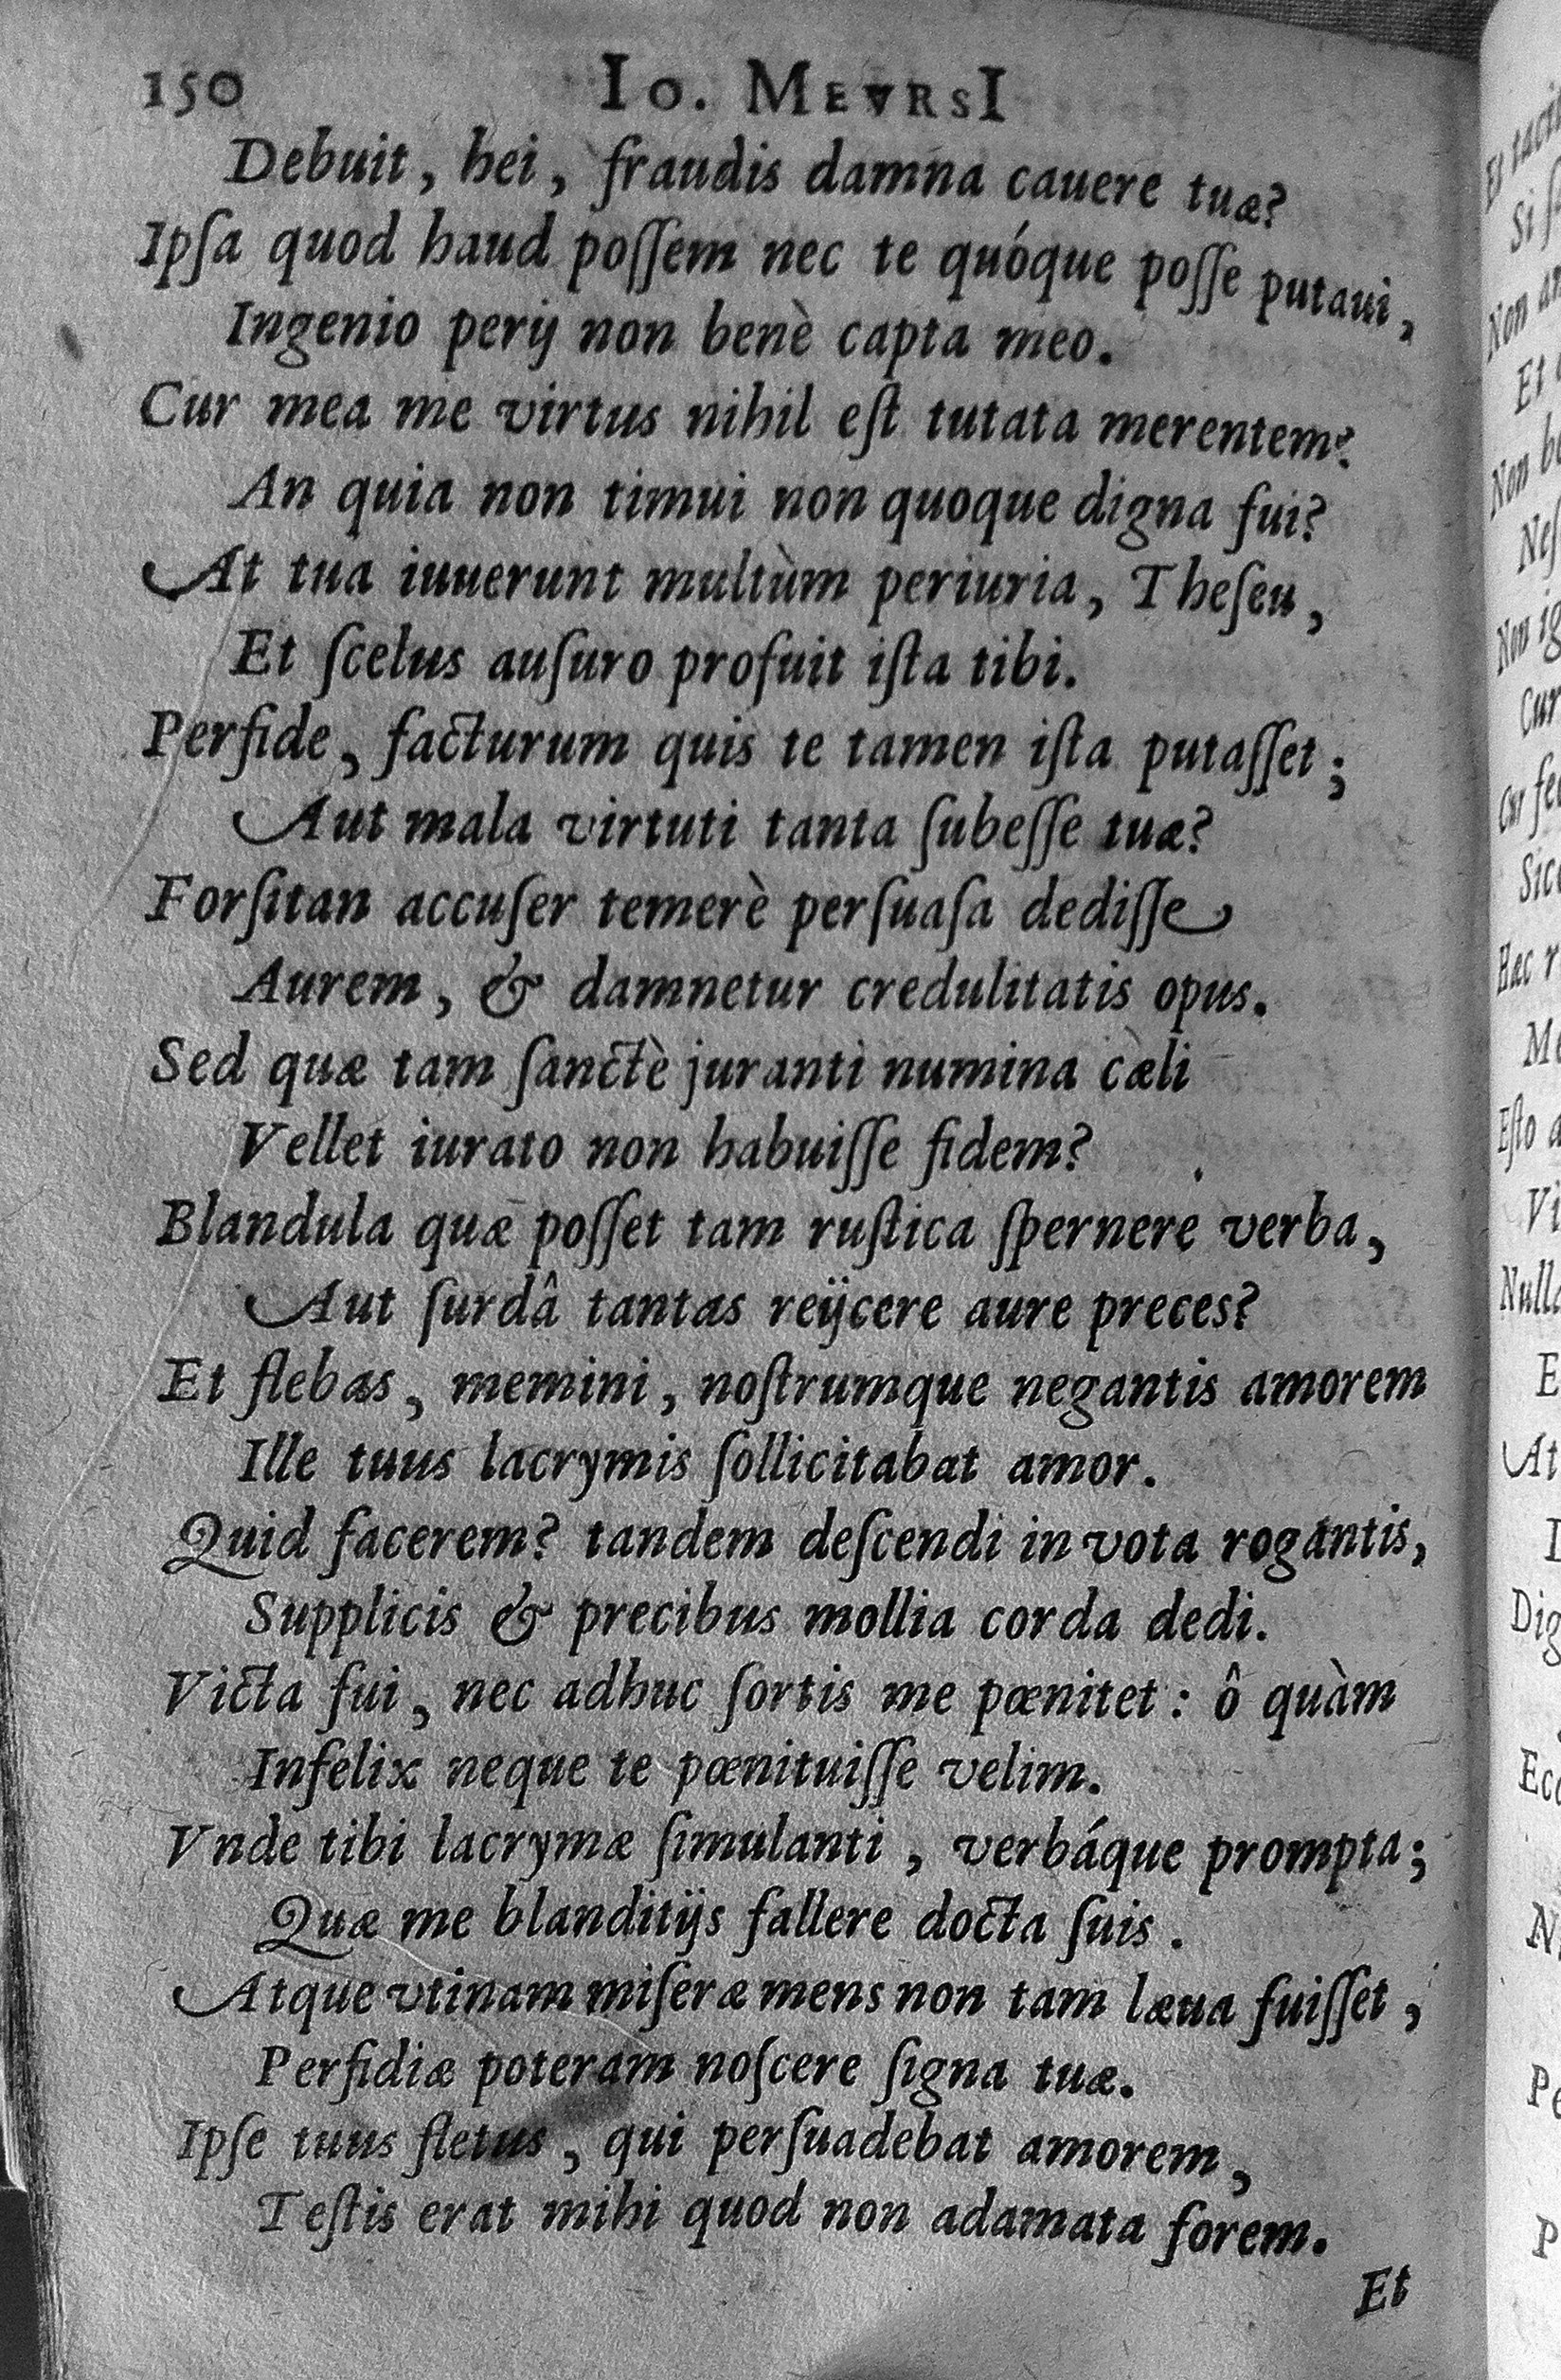 150 Io. MEVRSI
Debuit, hei, fraudis damna cauere tuæ?
Ipſa quod haud poſſem nec te quóque poſſe putaui,
Ingenio perij non benè capta meo.
Cur mea me virtus nihil eſt tutata merentem?
An quia non timui non quoque digna fui?
At tua iuuerunt multùm periuria, Theſeu,
Et ſcelus auſuro profuit iſta tibi.
Perfide, facturum quis te tamen iſta putaſſet;
Aut mala virtuti tanta ſubeſſe tuæ?
Forſitan accuſer temerè perſuaſa dediſſe
Aurem, & damnetur credulitatis opus.
Sed quæ tam ſanctè juranti numina cæli
Vellet iurato non habuiſſe fidem?
Blandula quæ poſſet tam ruſtica ſpernere verba,
Aut ſurdâ tantas reijcere aure preces?
Et flebas, memini, noſtrumque negantis amorem
Ille tuus lacrymis ſollicitabat amor.
Quid facerem? tandem deſcendi in vota rogantis,
Supplicis & precibus mollia corda dedi.
Victa fui, nec adhuc ſortis me pœnitet: ô quàm
Infelix neque te pœnituiſſe velim.
Vnde tibi lacrymæ ſimulanti, verbáque prompta;
Quæ me blanditijs fallere docta ſuis.
Atque vtinam miſeræ mens non tam læua fuiſſet,
Perfidiæ poteram noſcere ſigna tuæ.
Ipſe tuus fletus, qui perſuadebat amorem,
Teſtis erat mihi quod non adamata forem.
Et